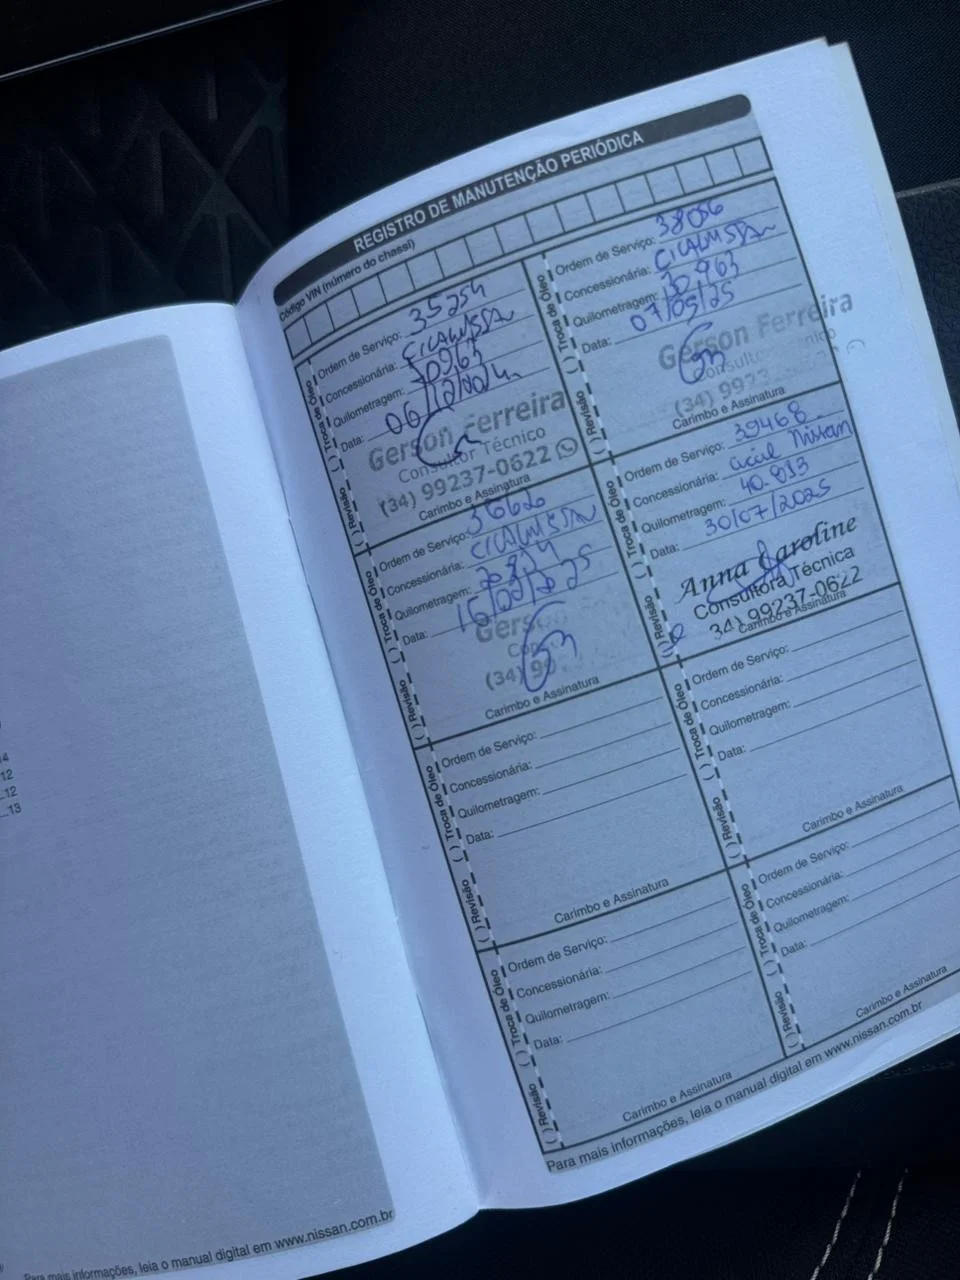 REGISTRO DE MANUTENÇÃO PERIÓDICA
Código VIN (número do chassi)
( ) Revisão ( ) Troca de Óleo
Ordem de Serviço: 35254
Concessionária:
Quilometragem:
Data:
Gerson Ferreira
Consultor Técnico
(34) 99237-0622
Carimbo e Assinatura
( ) Revisão ( ) Troca de Óleo
Ordem de Serviço: 38056
Concessionária:
Quilometragem: 30.963
Data: 07/05/25
Gerson Ferreira
(34) 9923
Carimbo e Assinatura
( ) Revisão ( ) Troca de Óleo
Ordem de Serviço:
Concessionária:
Quilometragem:
Data: 16/02/2025
Gerson
(34) 99
Carimbo e Assinatura
( ) Revisão ( ) Troca de Óleo
Ordem de Serviço: 39468
Concessionária: Cical Nissan
Quilometragem: 40.813
Data: 30/07/2025
Anna Karoline
Consultora Técnica
34) 99237-0622
Carimbo e Assinatura
( ) Revisão ( ) Troca de Óleo
Ordem de Serviço:
Concessionária:
Quilometragem:
Data:
Carimbo e Assinatura
( ) Revisão ( ) Troca de Óleo
Ordem de Serviço:
Concessionária:
Quilometragem:
Data:
Carimbo e Assinatura
( ) Revisão ( ) Troca de Óleo
Ordem de Serviço:
Concessionária:
Quilometragem:
Data:
Carimbo e Assinatura
( ) Revisão ( ) Troca de Óleo
Ordem de Serviço:
Concessionária:
Quilometragem:
Data:
Carimbo e Assinatura
Para mais informações, leia o manual digital em www.nissan.com.br
12
12
13
Para mais informações, leia o manual digital em www.nissan.com.br